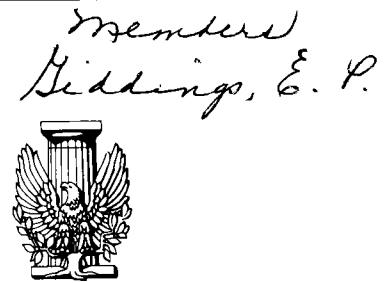 Members
Giddings, E. P.